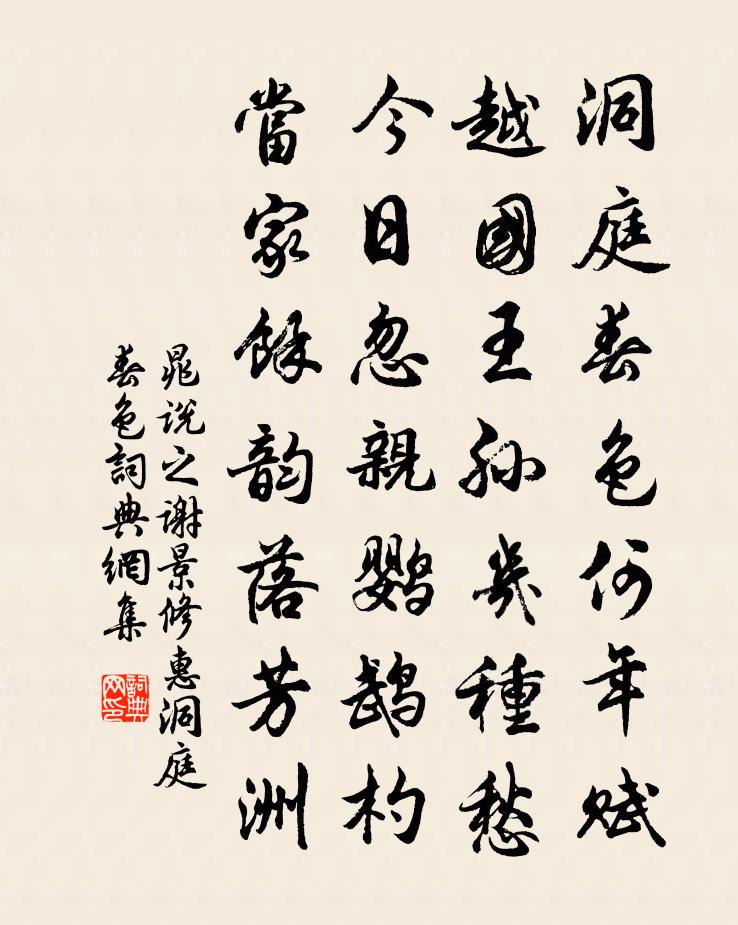 洞庭春色何年賦
越國王孫幾種愁
今日忽親鸚鵡杓
當家餘韵落芳洲
晁說之謝景修惠洞庭
春色詞典網集
詞典网印